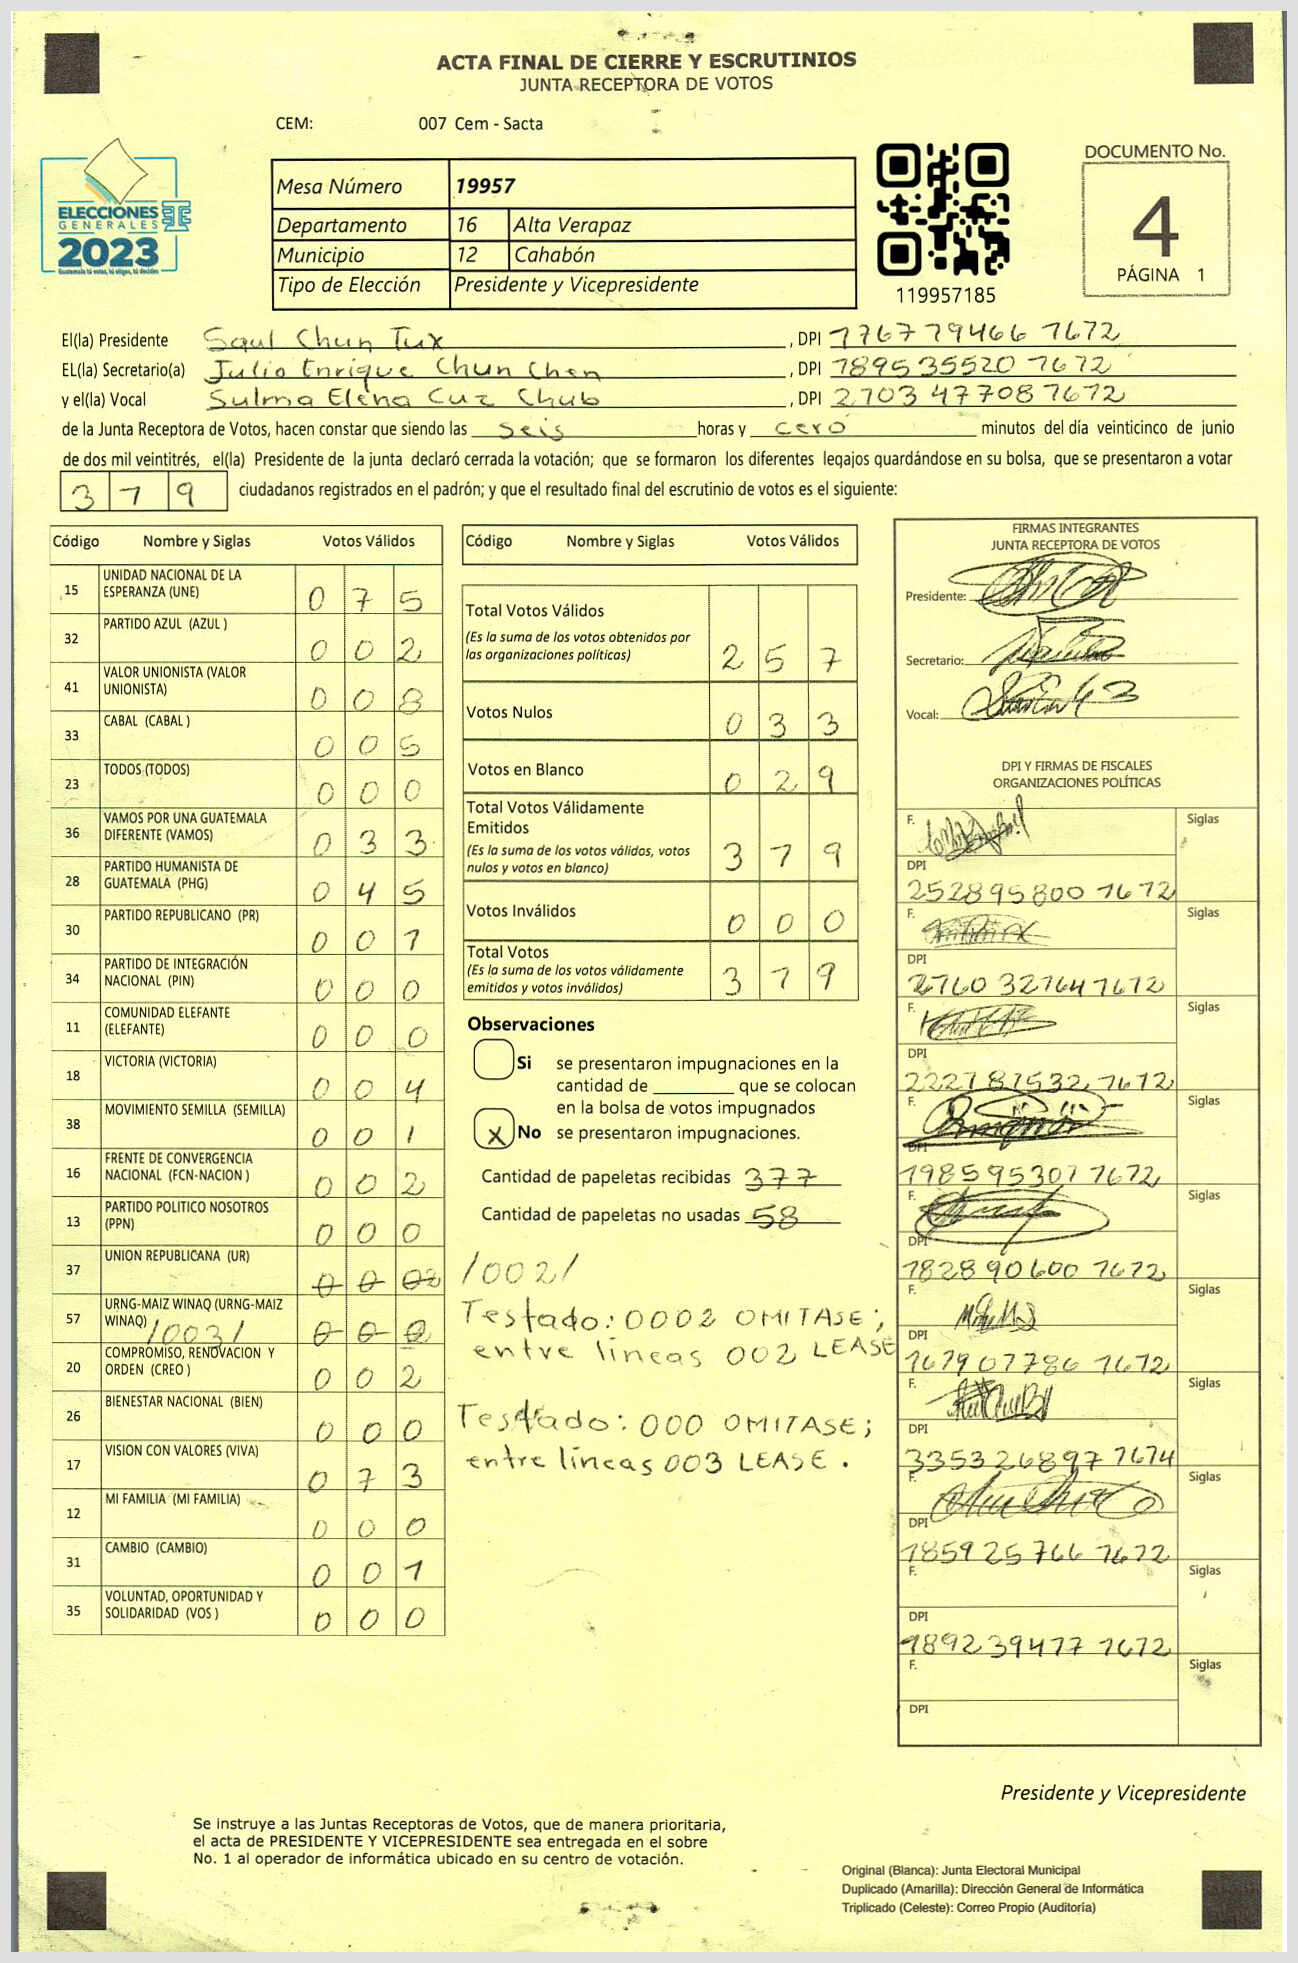 ACTA FINAL DE CIERRE Y ESCRUTINIOS
JUNTA RECEPTORA DE VOTOS
CEM: 007 Cem - Sacta
ELECCIONES
GENERALES
2023
Guatemala tú votas, tú eliges, tú decides
Mesa Número 19957
Departamento 16 Alta Verapaz
Municipio 12 Cahabón
Tipo de Elección Presidente y Vicepresidente
119957185
DOCUMENTO No.
4
PÁGINA 1
El(la) Presidente Saul Chun Tux, DPI 1767 79466 1672
EL(la) Secretario(a) Julio Enrique Chun Chen, DPI 1895 35520 1672
y el(la) Vocal Sulma Elena Cuz Chub, DPI 2703 47708 1672
de la Junta Receptora de Votos, hacen constar que siendo las seis horas y cero minutos del día veinticinco de junio
de dos mil veintitrés, el(la) Presidente de la junta declaró cerrada la votación; que se formaron los diferentes legajos guardándose en su bolsa, que se presentaron a votar
379 ciudadanos registrados en el padrón; y que el resultado final del escrutinio de votos es el siguiente:
Código Nombre y Siglas Votos Válidos
15 UNIDAD NACIONAL DE LA
ESPERANZA (UNE) 0 7 5
32 PARTIDO AZUL (AZUL ) 0 0 2
41 VALOR UNIONISTA (VALOR
UNIONISTA) 0 0 8
33 CABAL (CABAL ) 0 0 5
23 TODOS (TODOS) 0 0 0
36 VAMOS POR UNA GUATEMALA
DIFERENTE (VAMOS) 0 3 3
28 PARTIDO HUMANISTA DE
GUATEMALA (PHG) 0 4 5
30 PARTIDO REPUBLICANO (PR) 0 0 1
34 PARTIDO DE INTEGRACIÓN
NACIONAL (PIN) 0 0 0
11 COMUNIDAD ELEFANTE
(ELEFANTE) 0 0 0
18 VICTORIA (VICTORIA) 0 0 4
38 MOVIMIENTO SEMILLA (SEMILLA) 0 0 1
16 FRENTE DE CONVERGENCIA
NACIONAL (FCN-NACION ) 0 0 2
13 PARTIDO POLITICO NOSOTROS
(PPN) 0 0 0
37 UNION REPUBLICANA (UR) 0 0 02 /002/
57 URNG-MAIZ WINAQ (URNG-MAIZ
WINAQ) /003/ 0 0 0
20 COMPROMISO, RENOVACION Y
ORDEN (CREO ) 0 0 2
26 BIENESTAR NACIONAL (BIEN) 0 0 0
17 VISION CON VALORES (VIVA) 0 7 3
12 MI FAMILIA (MI FAMILIA) 0 0 0
31 CAMBIO (CAMBIO) 0 0 1
35 VOLUNTAD, OPORTUNIDAD Y
SOLIDARIDAD (VOS ) 0 0 0
Código Nombre y Siglas Votos Válidos
Total Votos Válidos
(Es la suma de los votos obtenidos por
las organizaciones políticas) 2 5 7
Votos Nulos 0 3 3
Votos en Blanco 0 2 9
Total Votos Válidamente
Emitidos
(Es la suma de los votos válidos, votos
nulos y votos en blanco) 3 7 9
Votos Inválidos 0 0 0
Total Votos
(Es la suma de los votos válidamente
emitidos y votos inválidos) 3 7 9
Observaciones
Si se presentaron impugnaciones en la
cantidad de ________ que se colocan
en la bolsa de votos impugnados
X No se presentaron impugnaciones.
Cantidad de papeletas recibidas 377
Cantidad de papeletas no usadas 58
Testado: 0002 OMITASE;
entre lineas 002 LEASE
Testado: 000 OMITASE;
entre lineas 003 LEASE.
FIRMAS INTEGRANTES
JUNTA RECEPTORA DE VOTOS
Presidente:
Secretario:
Vocal:
DPI Y FIRMAS DE FISCALES
ORGANIZACIONES POLÍTICAS
F. Siglas
DPI
2528 95800 1672
F. Siglas
DPI
2760 32764 1672
F. Siglas
DPI
2227 87532 1672
F. Siglas
DPI
1985 95307 1672
F. Siglas
DPI
1828 90600 1672
F. Siglas
DPI
1679 07786 1672
F. Siglas
DPI
3353 26897 1674
F. Siglas
DPI
1859 25766 1672
F. Siglas
DPI
1892 39477 1672
F. Siglas
DPI
Presidente y Vicepresidente
Se instruye a las Juntas Receptoras de Votos, que de manera prioritaria,
el acta de PRESIDENTE Y VICEPRESIDENTE sea entregada en el sobre
No. 1 al operador de informática ubicado en su centro de votación.
Original (Blanca): Junta Electoral Municipal
Duplicado (Amarilla): Dirección General de Informática
Triplicado (Celeste): Correo Propio (Auditoría)